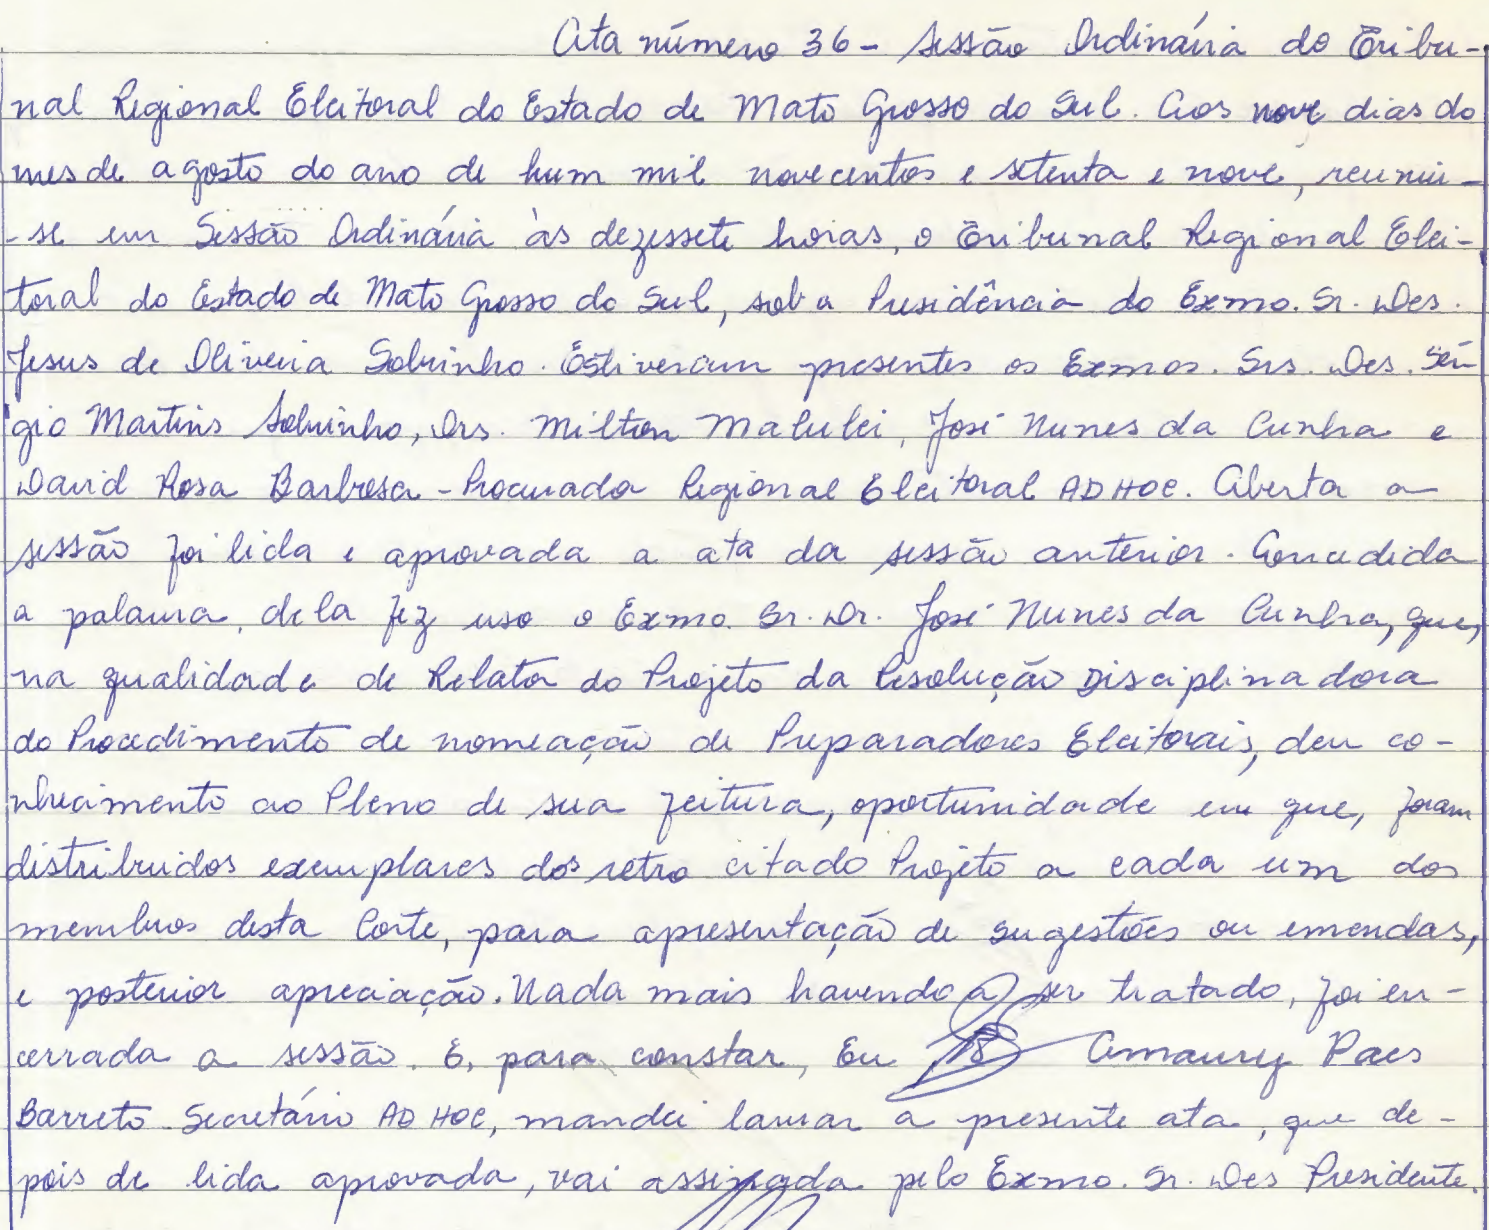 Ata número 36 - Sessão Ordinária do Tribu-
nal Regional Eleitoral do Estado de Mato Grosso do Sul. Aos nove dias do
mes de agosto do ano de hum mil novecentos e setenta e nove, reuniu-
-se em Sessão Ordinária às dezessete horas, o Tribunal Regional Elei-
toral do Estado de Mato Grosso do Sul, sob a Presidência do Exmo. Sr. Des.
Jesus de Oliveira Sobrinho. Estiveram presentes os Exmos. Srs. Des. Sér
gio Martins Sobrinho, Drs. Milton Malulei, José Nunes da Cunha e
David Rosa Barbosa - Procurador Regional Eleitoral AD HOC. Aberta a
sessão foi lida e aprovada a ata da sessão anterior. Concedida
a palavra, dela fez uso o Exmo. Sr. Dr. José Nunes da Cunha, que,
na qualidade de Relator do Projeto da Resolução Disciplinadora
do Procedimento de nomeação de Preparadores Eleitorais, deu co-
nhecimento ao Pleno de sua feitura, oportunidade em que, foram
distribuidos exemplares dos retro citado Projeto a cada um dos
membros desta Corte, para apresentação de sugestões ou emendas,
e posterior apreciação. Nada mais havendo a ser tratado, foi en-
cerrada a sessão. E, para constar, Eu Amaury Paes
Barreto - Secretário AD HOC, mandei lavrar a presente ata, que de-
pois de lida aprovada, vai assinada pelo Exmo. Sr. Des Presidente.